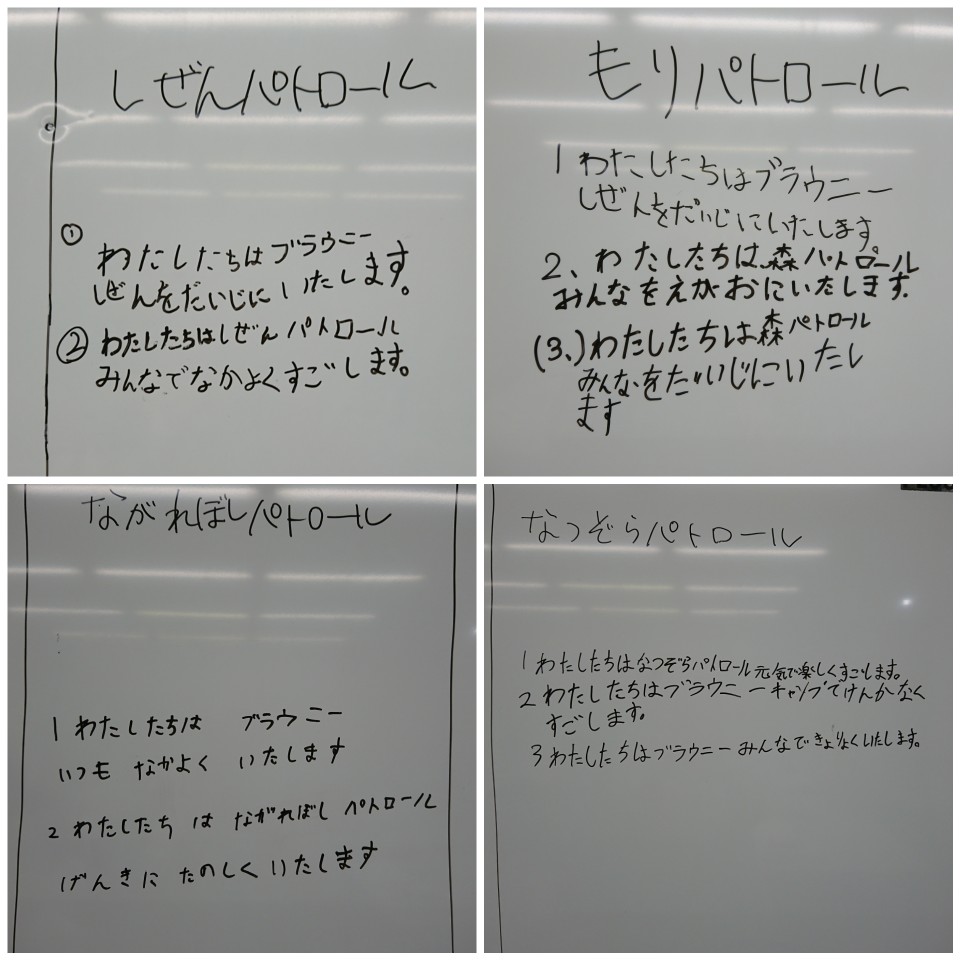 しぜんパトロール
① わたしたちはブラウニー
しぜんをだいじにいたします。
② わたしたちはしぜんパトロール
みんなでなかよくすごします。
もりパトロール
1 わたしたちはブラウニー
しぜんをだいじにいたします
2、わたしたちは森パトロール
みんなをえがおにいたします.
(3.)わたしたちは森パトロール
みんなをだいじにいたし
ます
ながれぼしパトロール
1 わたしたちは ブラウニー
いつも なかよく いたします
2 わたしたち は ながれぼし パトロール
げんきに たのしく いたします
なつぞらパトロール
1 わたしたちはなつぞらパトロール元気で楽しくすごします。
2 わたしたちはブラウニーキャンプでけんかなく
すごします。
3 わたしたちはブラウニーみんなできょりょくいたします。